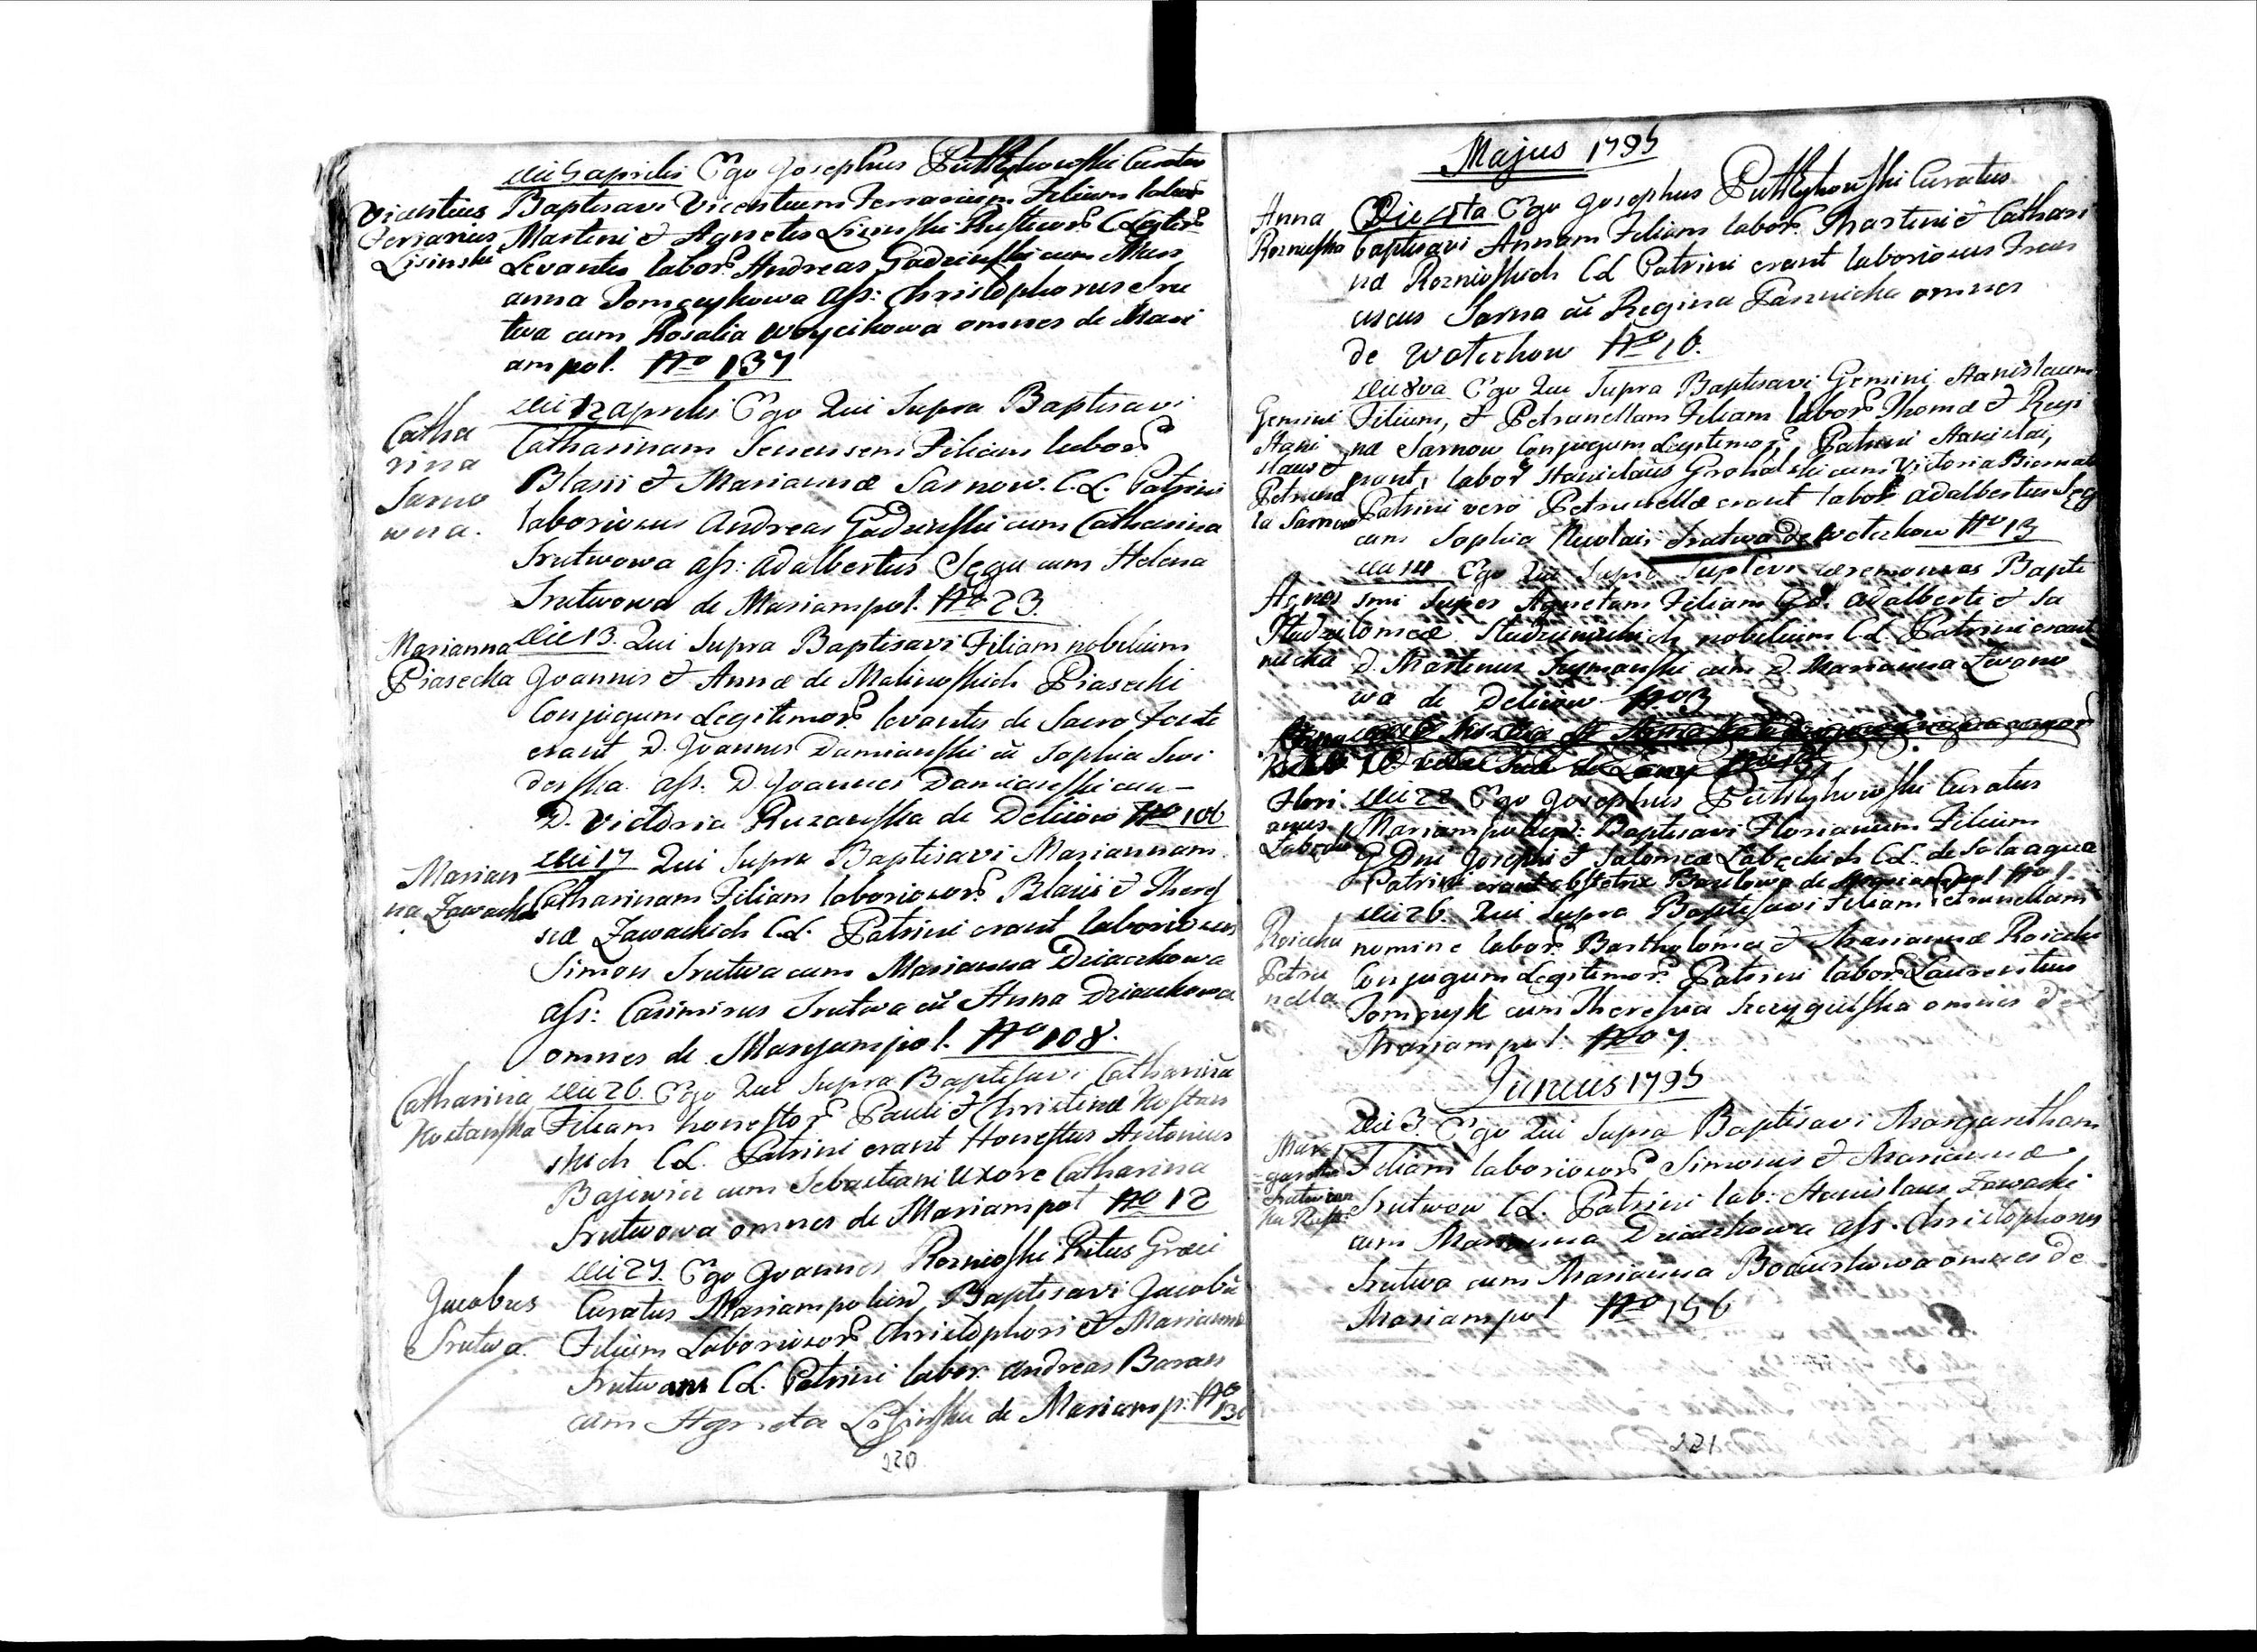 die 5 aprilis Ego Josephus Curatus
Vicentius Ferrarius Lisinski
Baptisavi Vicentium Ferrarium Filium labor
Martini et Agnetis Lisinski
Levantes labor. Andreas Gadzinski cum Mari
anna Tomczykowa ass: Christophorus Sru
twa cum Rosalia Woycikowa omnes de Mari
ampol. No 137
Catha
rina
Sarno
wna.
die 12 aprilis Ego Qui Supra Baptisavi
Catharinam Senensem Filiam labor
Blasii et Mariannæ Sarnow. C.L. Patrini
laboriosus Andreas Gadzinski cum Catharina
Srutwowa ass: Adalbertus Sęga cum Helena
Srutwowa de Mariampol. No 23.
Marianna
Piasecka
die 13. Qui Supra Baptisavi Filiam nobilium
Joannis et Annæ de Malinoskich Piasecki
Conjugum Legitimor. levantes de Sacro Fonte
erant D. Joannes Damianski cũ Sophia Swi
derska ass. D. Joannes Damianski cum
D. Victoria Ruzanska de No 106
Marian
na Zawacka
die 17 Qui Supra Baptisavi Mariannam
Catharinam Filiam laboriosor. Blasii et There
siæ Zawackich C.L. Patrini erant laboriosus
Simon Srutwa cum Marianna Dziaczkowa
ass: Casimirus Srutwa cũ Anna Dziaczkowa
omnes de Maryampol. No 108.
Catharina
Kostanska
die 26. Ego Qui Supra Baptisavi Catharinã
Filiam honestor. Pauli et Christinæ Kostan
skich C.L. Patrini erant Honestus Antonius
Bajewicz cum Sebastiani Uxore Catharina
Srutwowa omnes de Mariampol No 12
Jacobus
Srutwa.
die 27. Ego Joannes Roznioski Ritus Græci
Curatus Mariampolien Baptisavi Jacobũ
Filium Laboriosor. Christophori et Mariannæ
C.L. Patrini labor. Andreas Baran
cum Agneta Lisinska de Mariamp: No
130
220
Majus 1795
Anna
Roznioska
Die 4ta Ego Josephus Curatus
baptisavi Annam Filiam labor. Martini et Cathari
næ Roznioskich C.L. Patrini erant laboriosus Fran
ciscus Sarna cũ Regina omnes
de Wotuchow No 16.
Gemini
Stani
slaus et
Petrunel
la Sarnow
die 8va Ego Qui Supra Baptisavi Gemini Stanislaum
Filium, et Petrunellam Filiam labor. Thomæ et Regi
næ Sarnow Conjugum Legitimor, Patrini Stanislai,
erant, labor. Stanislaus cum Victoria
Patrini vero Petrunellæ erant labor. Adalbertus Sęga
cum Sophia Nicolai Srutwa de Wotuchow No 13
Agnes
Studzi
nicka
die 14 Ego Qui Supra Suplevi ceremonias Bapti
smi super Agnetam Filiam Adalberti et Sa
lomeæ Studzinickich nobilium C.L. Patrini erant
D. Martinus Szymanski cum D. Marianna
wa de No 3
Flori
anus
Labęcki
die 22 Ego Josephus Curatus
Mariampolien: Baptisavi Florianum Filium
G. Dni Josephi et Salomeæ Labęckich C.L. de Sola aqua
Patrini erant obstetrix de Mariampol No 1.
Roicka
Petru
nella
die 26. Qui Supra Baptisavi Filiam Petrunellam
nomine labor. Bartholomæi et Mariannæ
Conjugum Legitimor. Patrini labor. Laurentius
Tomczyk cum Theresia omnes de
Mariampol. No 7.
Junius 1795
Mar
garetha
die 3. Ego Qui Supra Baptisavi Margaretham
Filiam laboriosor. Simonis et Mariannæ
Srutwow C.L. Patrini lab: Stanislaus Zawacki
cum Marianna Dziaczkowa ass. Christophorus
Srutwa cum Marianna omnes de
Mariampol No 156
221